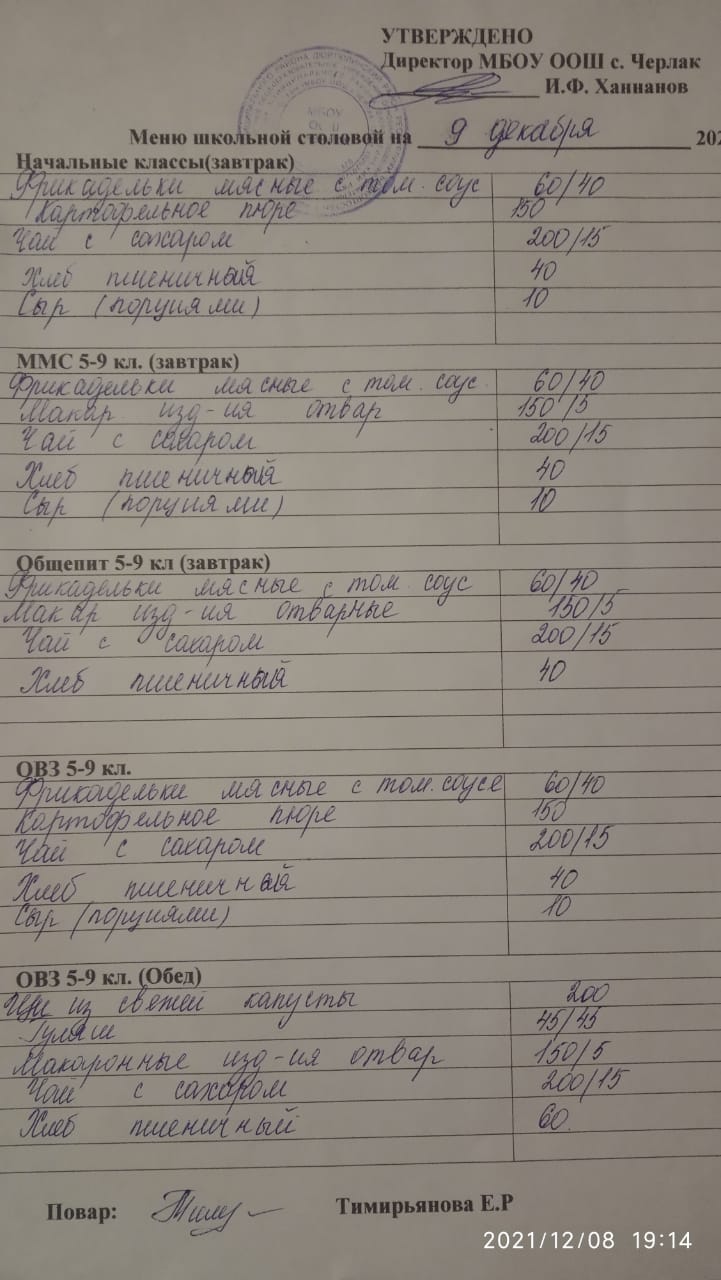 УТВЕРЖДЕНО
Директор МБОУ ООШ с. Черлак
И.Ф. Ханнанов
МБОУ
Меню школьной столовой на 9 декабря 202
Начальные классы(завтрак)
Фрикадельки мясные с том. соус 60/40
Картофельное пюре 150
Чай с сахаром 200/15
Хлеб пшеничный 40
Сыр (порциями) 10
ММС 5-9 кл. (завтрак)
Фрикадельки мясные с том. соус. 60/40
Макар изд-ия отвар 150/5
Чай с сахаром 200/15
Хлеб пшеничный 40
Сыр (порциями) 10
Общепит 5-9 кл (завтрак)
Фрикадельки мясные с том. соус 60/40
Макар изд-ия отварные 150/5
Чай с сахаром 200/15
Хлеб пшеничный 40
ОВЗ 5-9 кл.
Фрикадельки мясные с том. соусе 60/40
Картофельное пюре 150
Чай с сахаром 200/15
Хлеб пшеничный 40
Сыр (порциями) 10
ОВЗ 5-9 кл. (Обед)
Щи из свежей капусты 200
Гуляш 45/45
Макаронные изд-ия отвар 150/5
Чай с сахаром 200/15
Хлеб пшеничный 60
Повар: Тимирьянова Е.Р
2021/12/08 19:14